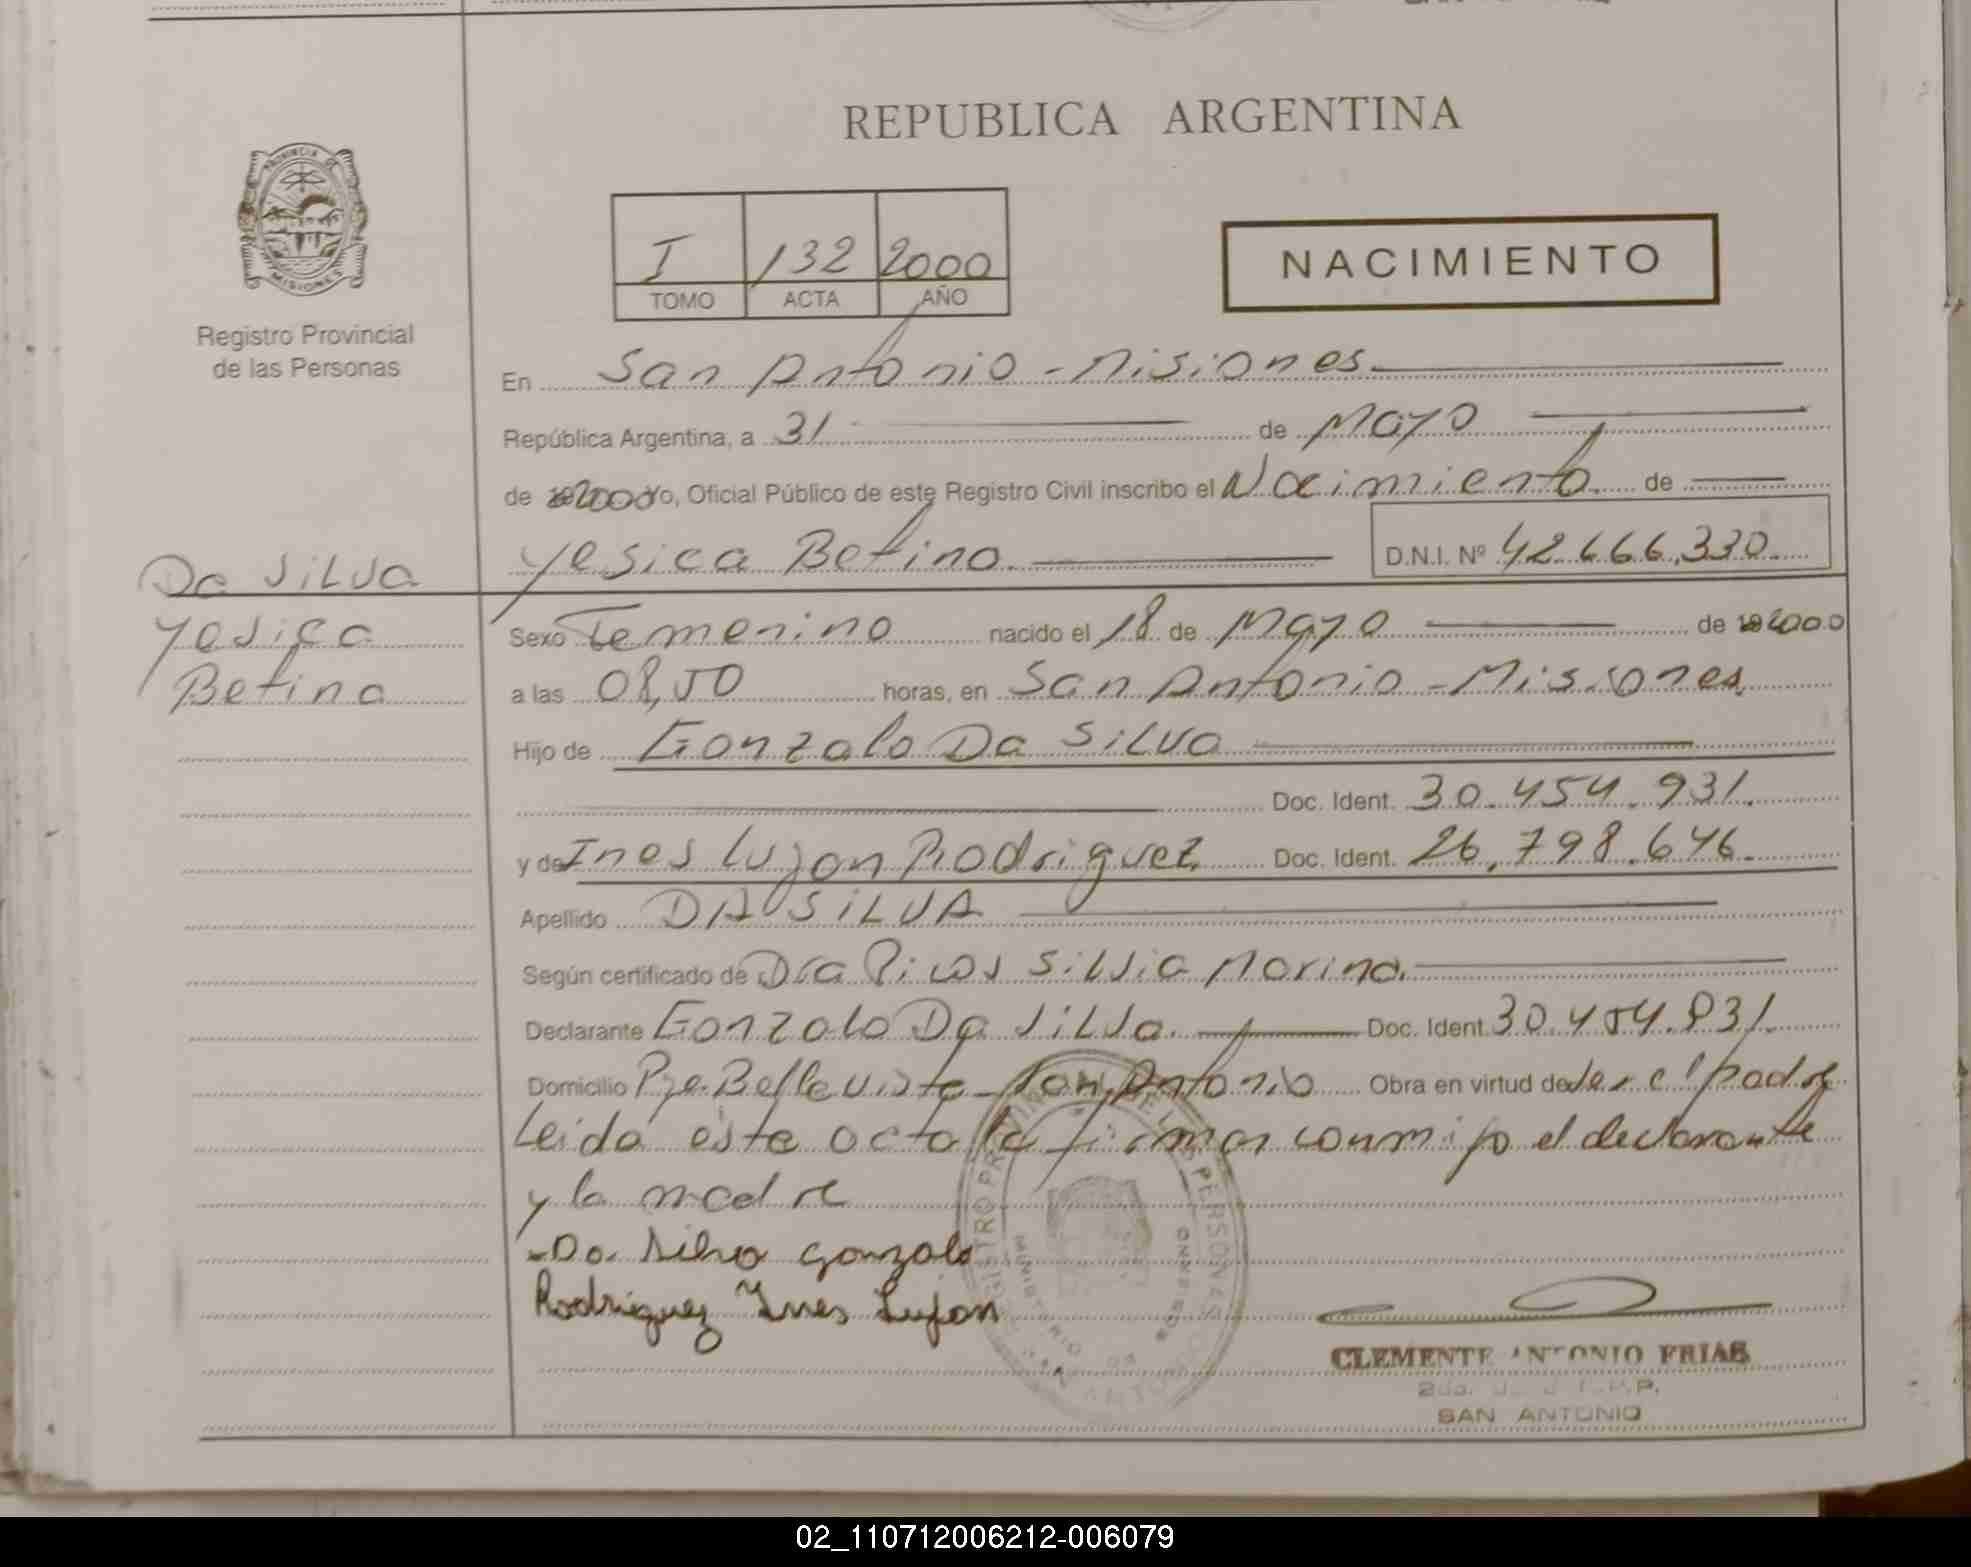 REPUBLICA ARGENTINA
PROVINCIA DE
MISIONES
Registro Provincial
de las Personas
I 132 2000
TOMO ACTA AÑO
NACIMIENTO
En San Antonio - Misiones
República Argentina, a 31 de Mayo
de 2000 Yo, Oficial Público de este Registro Civil inscribo el Nacimiento de
Yesica Betina D.N.I. Nº 42.666.330
Da Silva
Yesica
Betina
Sexo Femenino nacido el 18 de Mayo de 2000
a las 08,50 horas, en San Antonio - Misiones
Hijo de Gonzalo Da Silva
Doc. Ident. 30.454.931.
y de Ines Lujan Rodriguez Doc. Ident. 26.798.646.
Apellido DA SILVA
Según certificado de Dra Silvia Marina.
Declarante Gonzalo Da Silva. Doc. Ident. 30.454.931.
Domicilio Bella Vista - San Antonio Obra en virtud de ser el padre
Leida este acta la firman conmigo el declarante
y la madre
Da Silva Gonzalo
Rodriguez Ines Lujan
CLEMENTE ANTONIO FRIAS
SAN ANTONIO
02_110712006212-006079